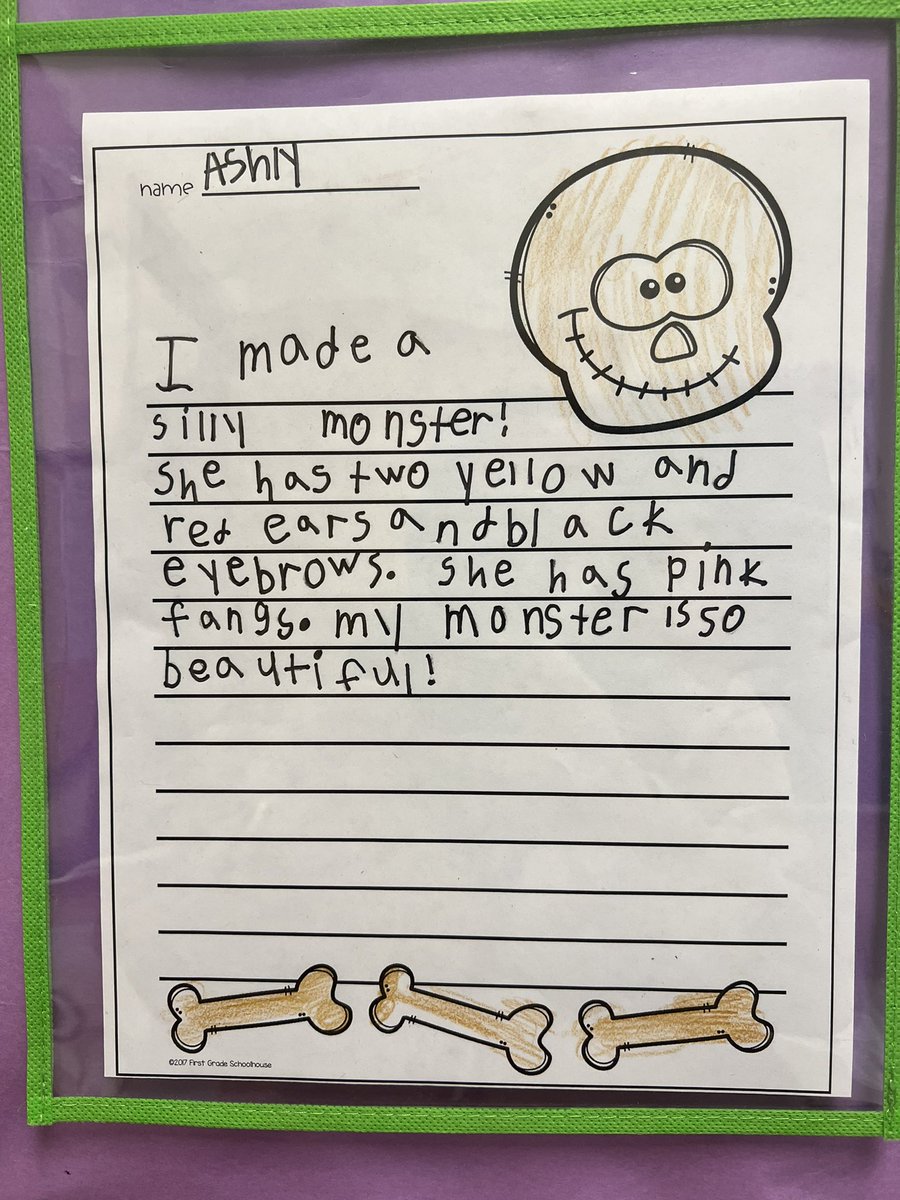 name AShly
I made a
silly monster!
She has two yellow and
red ears and black
eyebrows. She has pink
fangs. my monster is so
beautiful!
©2017 First Grade Schoolhouse